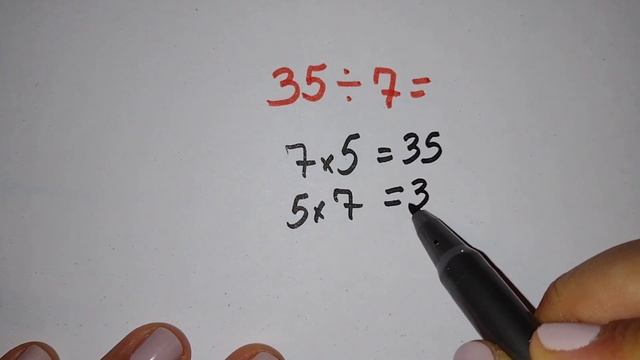 35÷7=
7×5=35
5×7=3